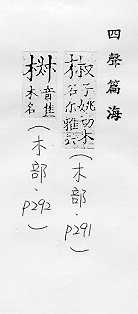 四聲篇海
子姚切木
名尔雅云
(木部.p291)
音桂
木名
(木部.p292)